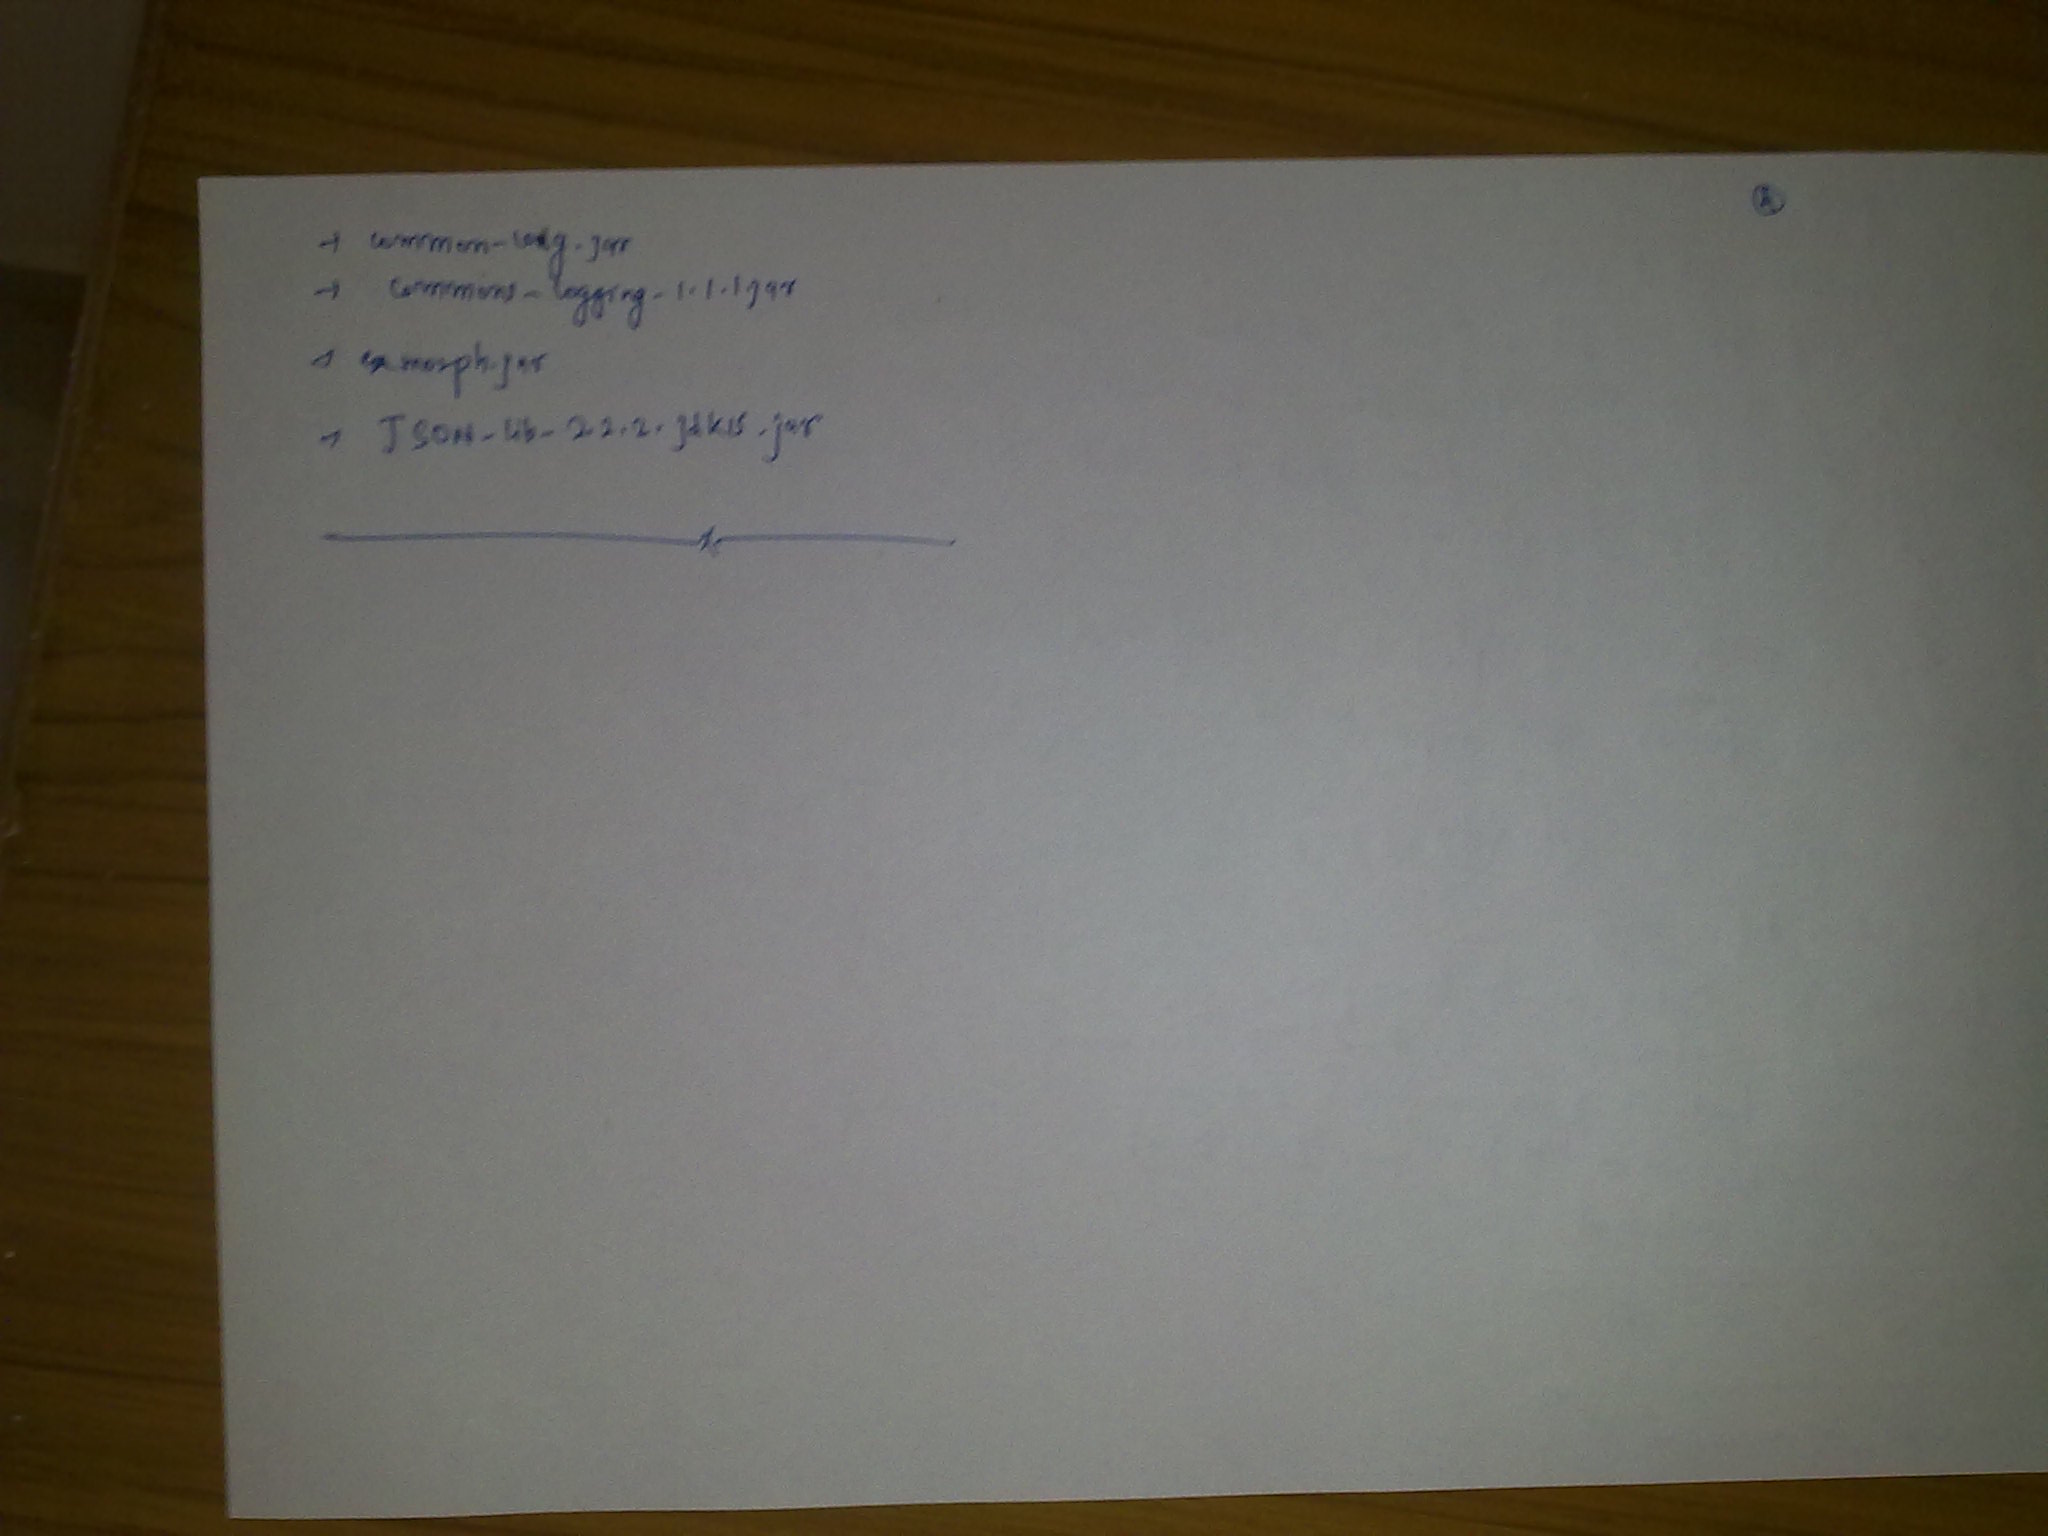 → common-lang.jar
→ commons-logging-1.1.1jar
→ ezmorph.jar
→ JSON-lib-2.2.2.jdk15.jar